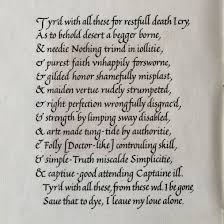 Tyr'd with all these for restfull death I cry,
As to behold desert a begger borne,
& needie Nothing trimd in iollitie,
& purest faith vnhappily forsworne,
& gilded honor shamefully misplast,
& maiden vertue rudely strumpeted,
& right perfection wrongfully disgrac'd,
& strength by limping sway disabled,
& arte made tung-tide by authoritie,
& Folly [Doctor-like] controuling skill,
& simple-Truth miscalde Simplicitie,
& captiue-good attending Captaine ill.
Tyr'd with all these, from these wd. I be gone,
Saue that to dye, I leaue my loue alone.